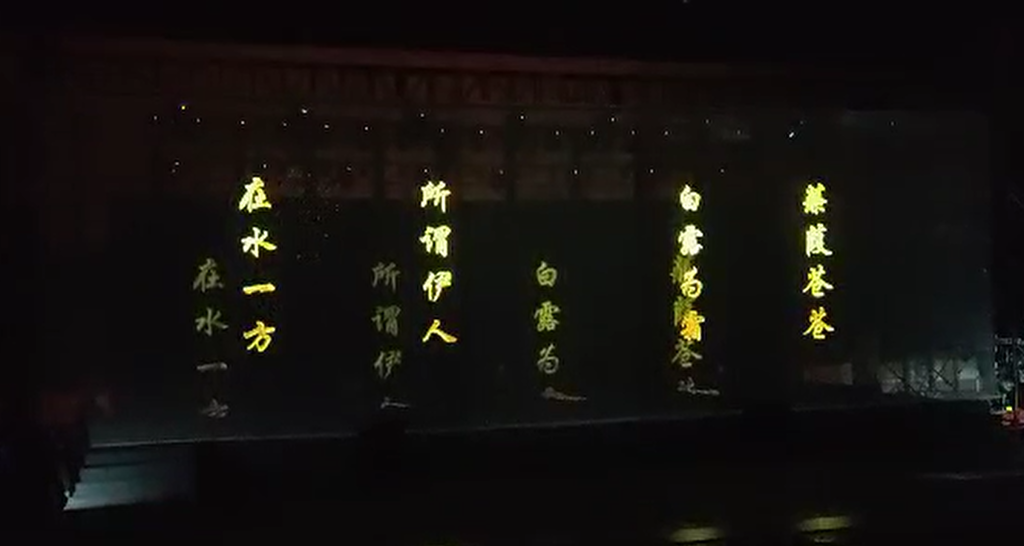 蒹葭苍苍
白露为霜
所谓伊人
在水一方
苍
白露为
所谓伊
在水一